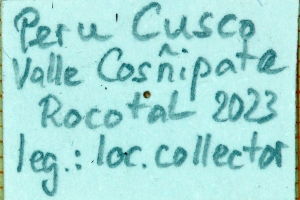 Peru Cusco
Valle Cosñipata
Rocotal 2023
leg.: loc. collector